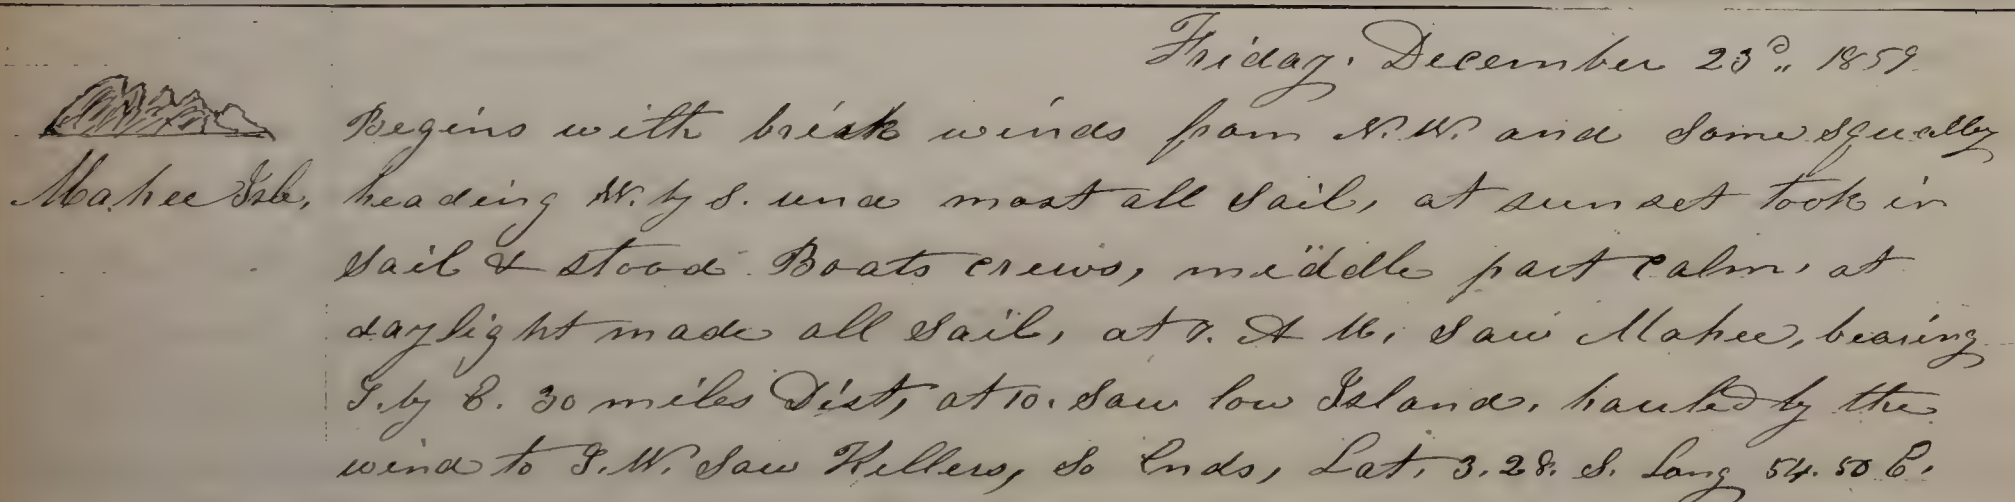 Friday. December 23d,, 1859
Begins with brisk winds from N.W. and some squally
Mahee Isle, heading W. by S. und most all sail, at sunset took in
sail & stood Boats crews, middle part calm, at
daylight made all sail, at 7. A M, saw Mahee, bearing
S. by E. 30 miles Dist, at 10. saw low Island, hauled by the
wind to S.W. saw Killers, so Ends, Lat, 3.28. S. Long 54.50 E.